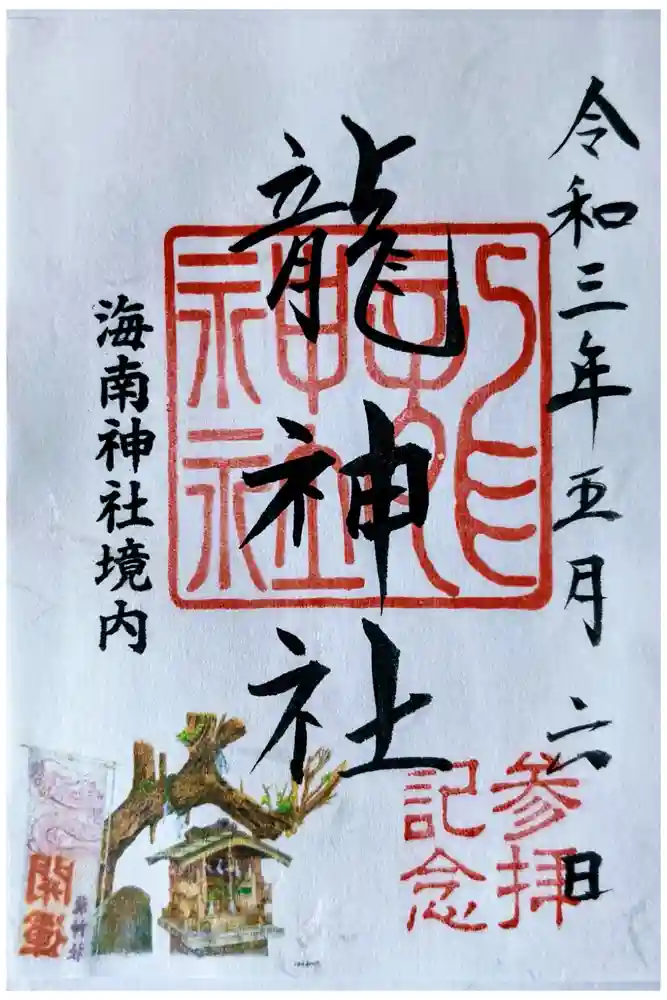 令和三年五月六日
参拝
記念
龍神社
海南神社境内
開運
龍神社